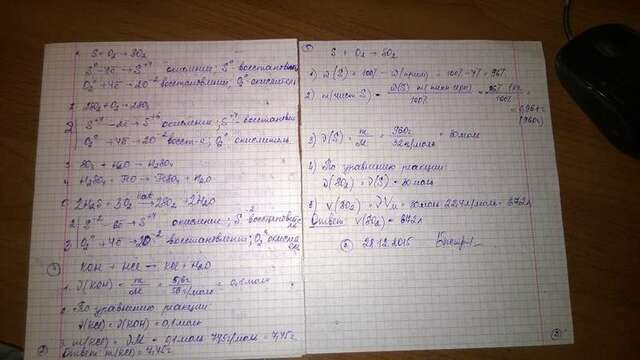 1. S + O₂ → SO₂
S⁰ - 4ē → S⁺⁴ окисление; S⁰ восстановитель
O₂⁰ + 4ē → 2O⁻² восстановление; O₂⁰ окислитель
2. 2SO₂ + O₂ → 2SO₃
S⁺⁴ - 2ē → S⁺⁶ окисление; S⁺⁴ восстановит
O₂⁰ + 4ē → 2O⁻² восст-е; O₂⁰ окислитель.
3. SO₃ + H₂O → H₂SO₄
4. H₂SO₄ +
2H₂S + 3O₂ → 2SO₂ + 2H₂O
2| S⁻² - 6ē → S⁺⁴ окисление; S⁻² восстановитель
3| O₂⁰ + 4ē → 2O⁻² восстановление; O₂⁰ окислитель
KOH + HCl → KCl + H₂O
1. ν(KOH) = m/M = 5,6г/56г/моль = 0,1 моль
2. По уравнению реакции:
ν(KCl) = ν(KOH) = 0,1 моль
3. m(KCl) = νM = 0,1 моль · 74,5 г/моль = 7,45г
Ответ: m(KCl) = 7,45г.
②
①
S + O₂ → SO₂
1) ω(S) = 100% - ω(прим) = 100% - 4% = 96%
2) m(чист S) = 96% · 1кг/100% = 0,96кг
(960г)
3) ν(S) = m/M = 960г/32г/моль = 30 моль
4) По уравнению реакции:
ν(SO₂) = ν(S) = 30 моль
5) V(SO₂) = νVм = 30 моль · 22,4 л/моль = 672л
Ответ: V(SO₂) = 672л
② 28.12.2015
③